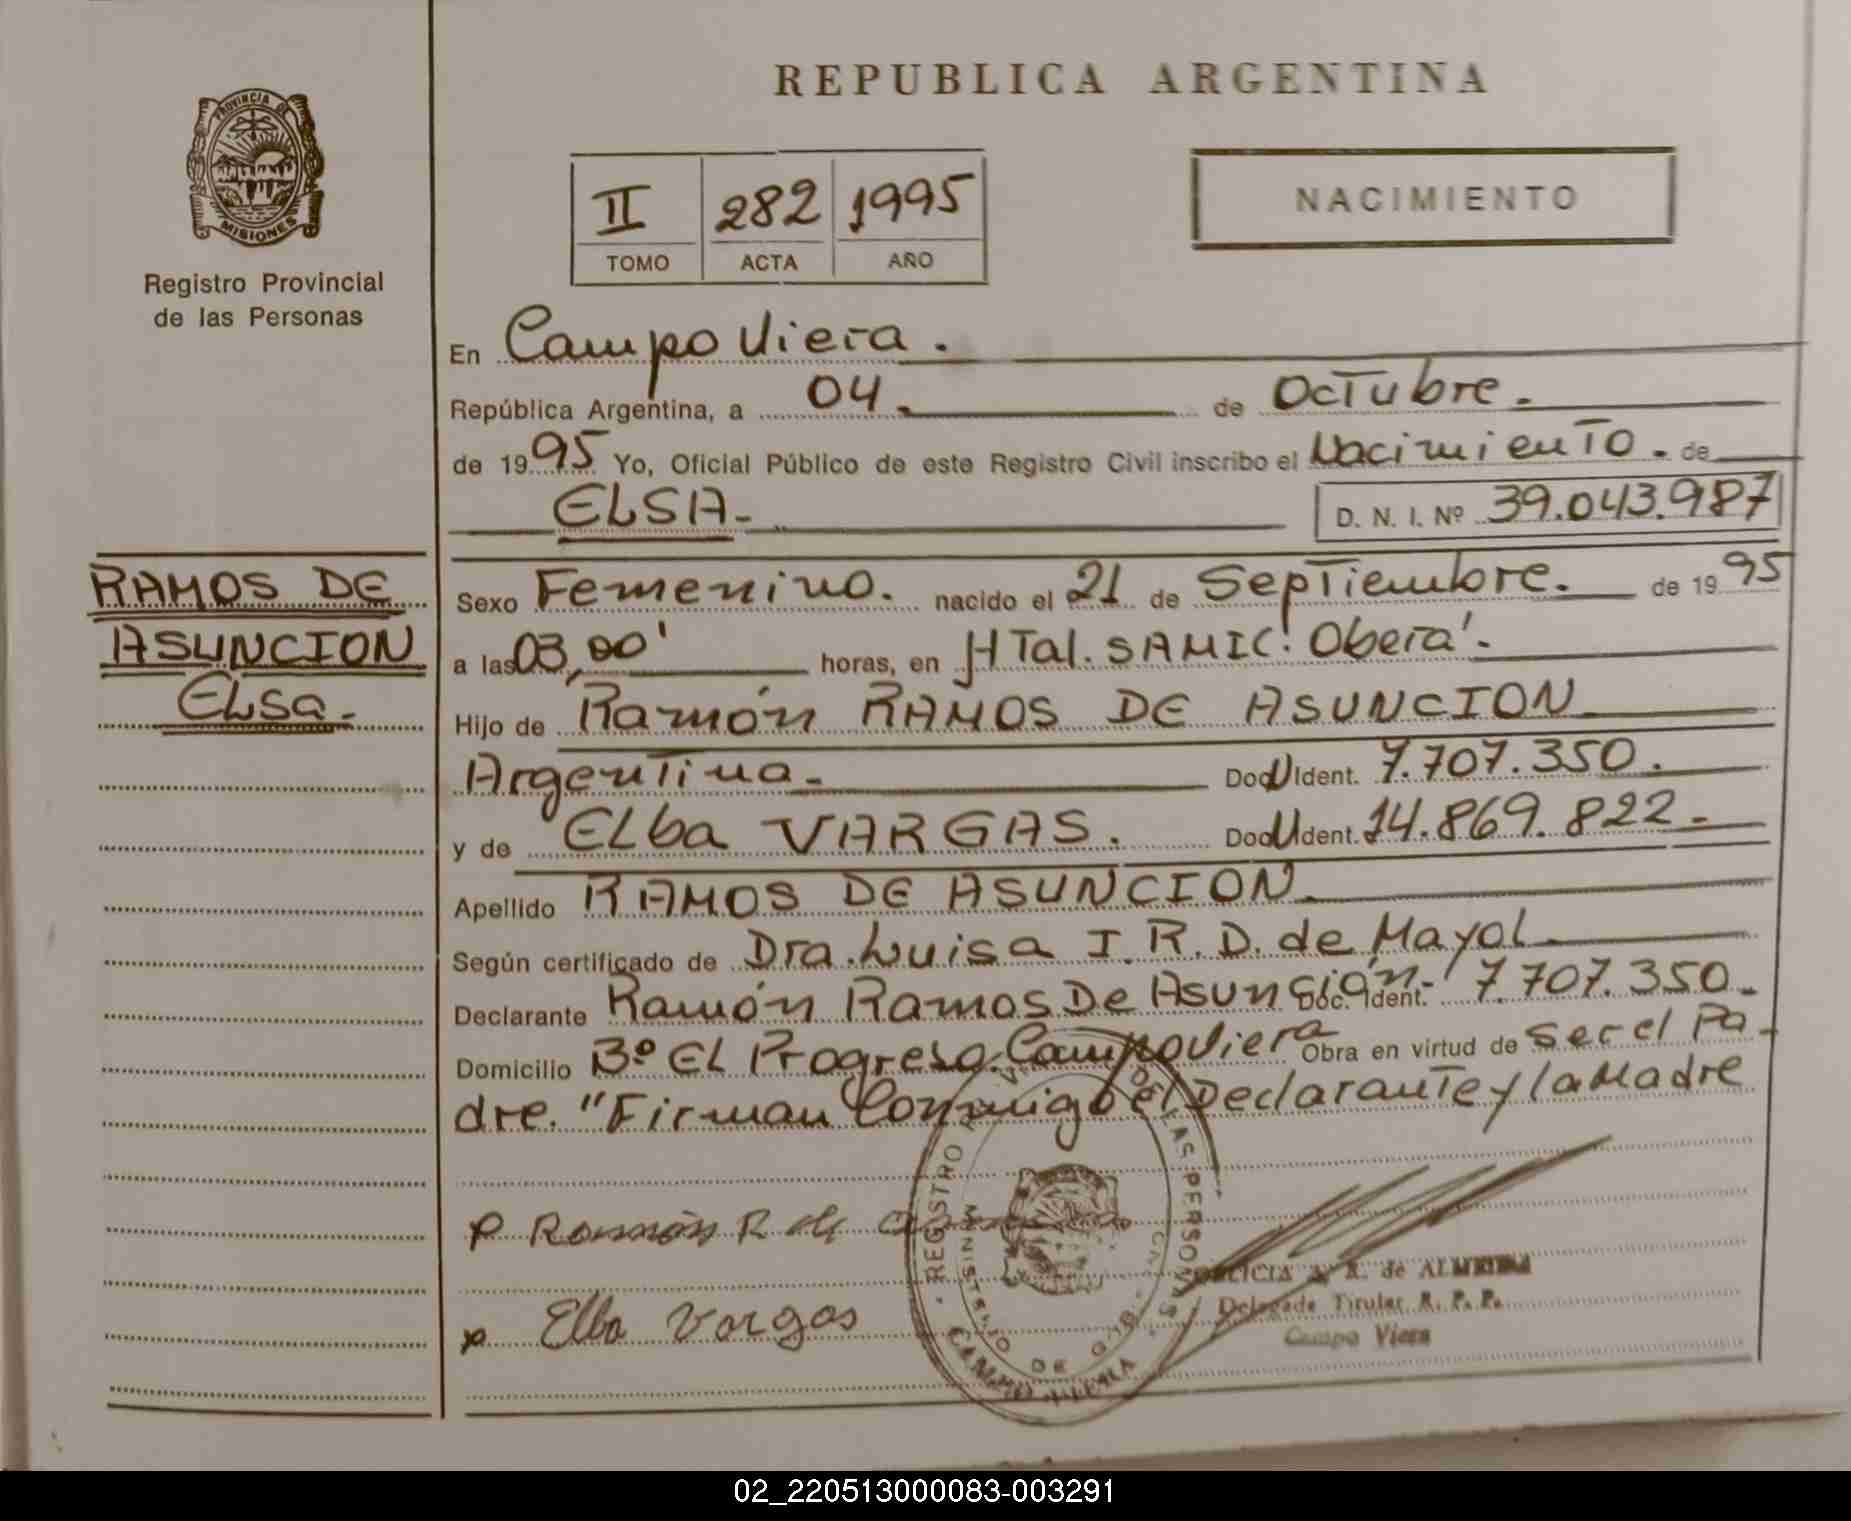 REPUBLICA ARGENTINA
PROVINCIA DE
MISIONES
Registro Provincial
de las Personas
II 282 1995
TOMO ACTA AÑO
NACIMIENTO
En Campo Viera.
República Argentina, a 04. de Octubre.
de 1995 Yo, Oficial Público de este Registro Civil inscribo el Nacimiento. de
ELSA- D. N. I. Nº 39.043.987
RAMOS DE
ASUNCION
Elsa-
Sexo Femenino. nacido el 21 de Septiembre. de 1995
a las 03,00' horas, en HTal. SAMIC. Oberá.
Hijo de Ramón RAMOS DE ASUNCION
Argentina- Doc U Ident. 7.707.350.
y de Elba VARGAS. Doc U Ident. 14.869.822-
Apellido RAMOS DE ASUNCION
Según certificado de Dra. Luisa I. R. D. de Mayol
Declarante Ramón Ramos De Asunción- Doc. Ident. 7.707.350-
Domicilio Bº EL Progreso. Campo Viera Obra en virtud de ser el Pa-
dre. "Firman Conmigo el Declarante y la Madre
Ramón R de
Elba Vargas
REGISTRO DE LAS PERSONAS
MINISTERIO DE GOB
CAMPO VIERA
A. R. de ALMEIDA
Delegada Titular R. P. P.
Campo Viera
02_220513000083-003291